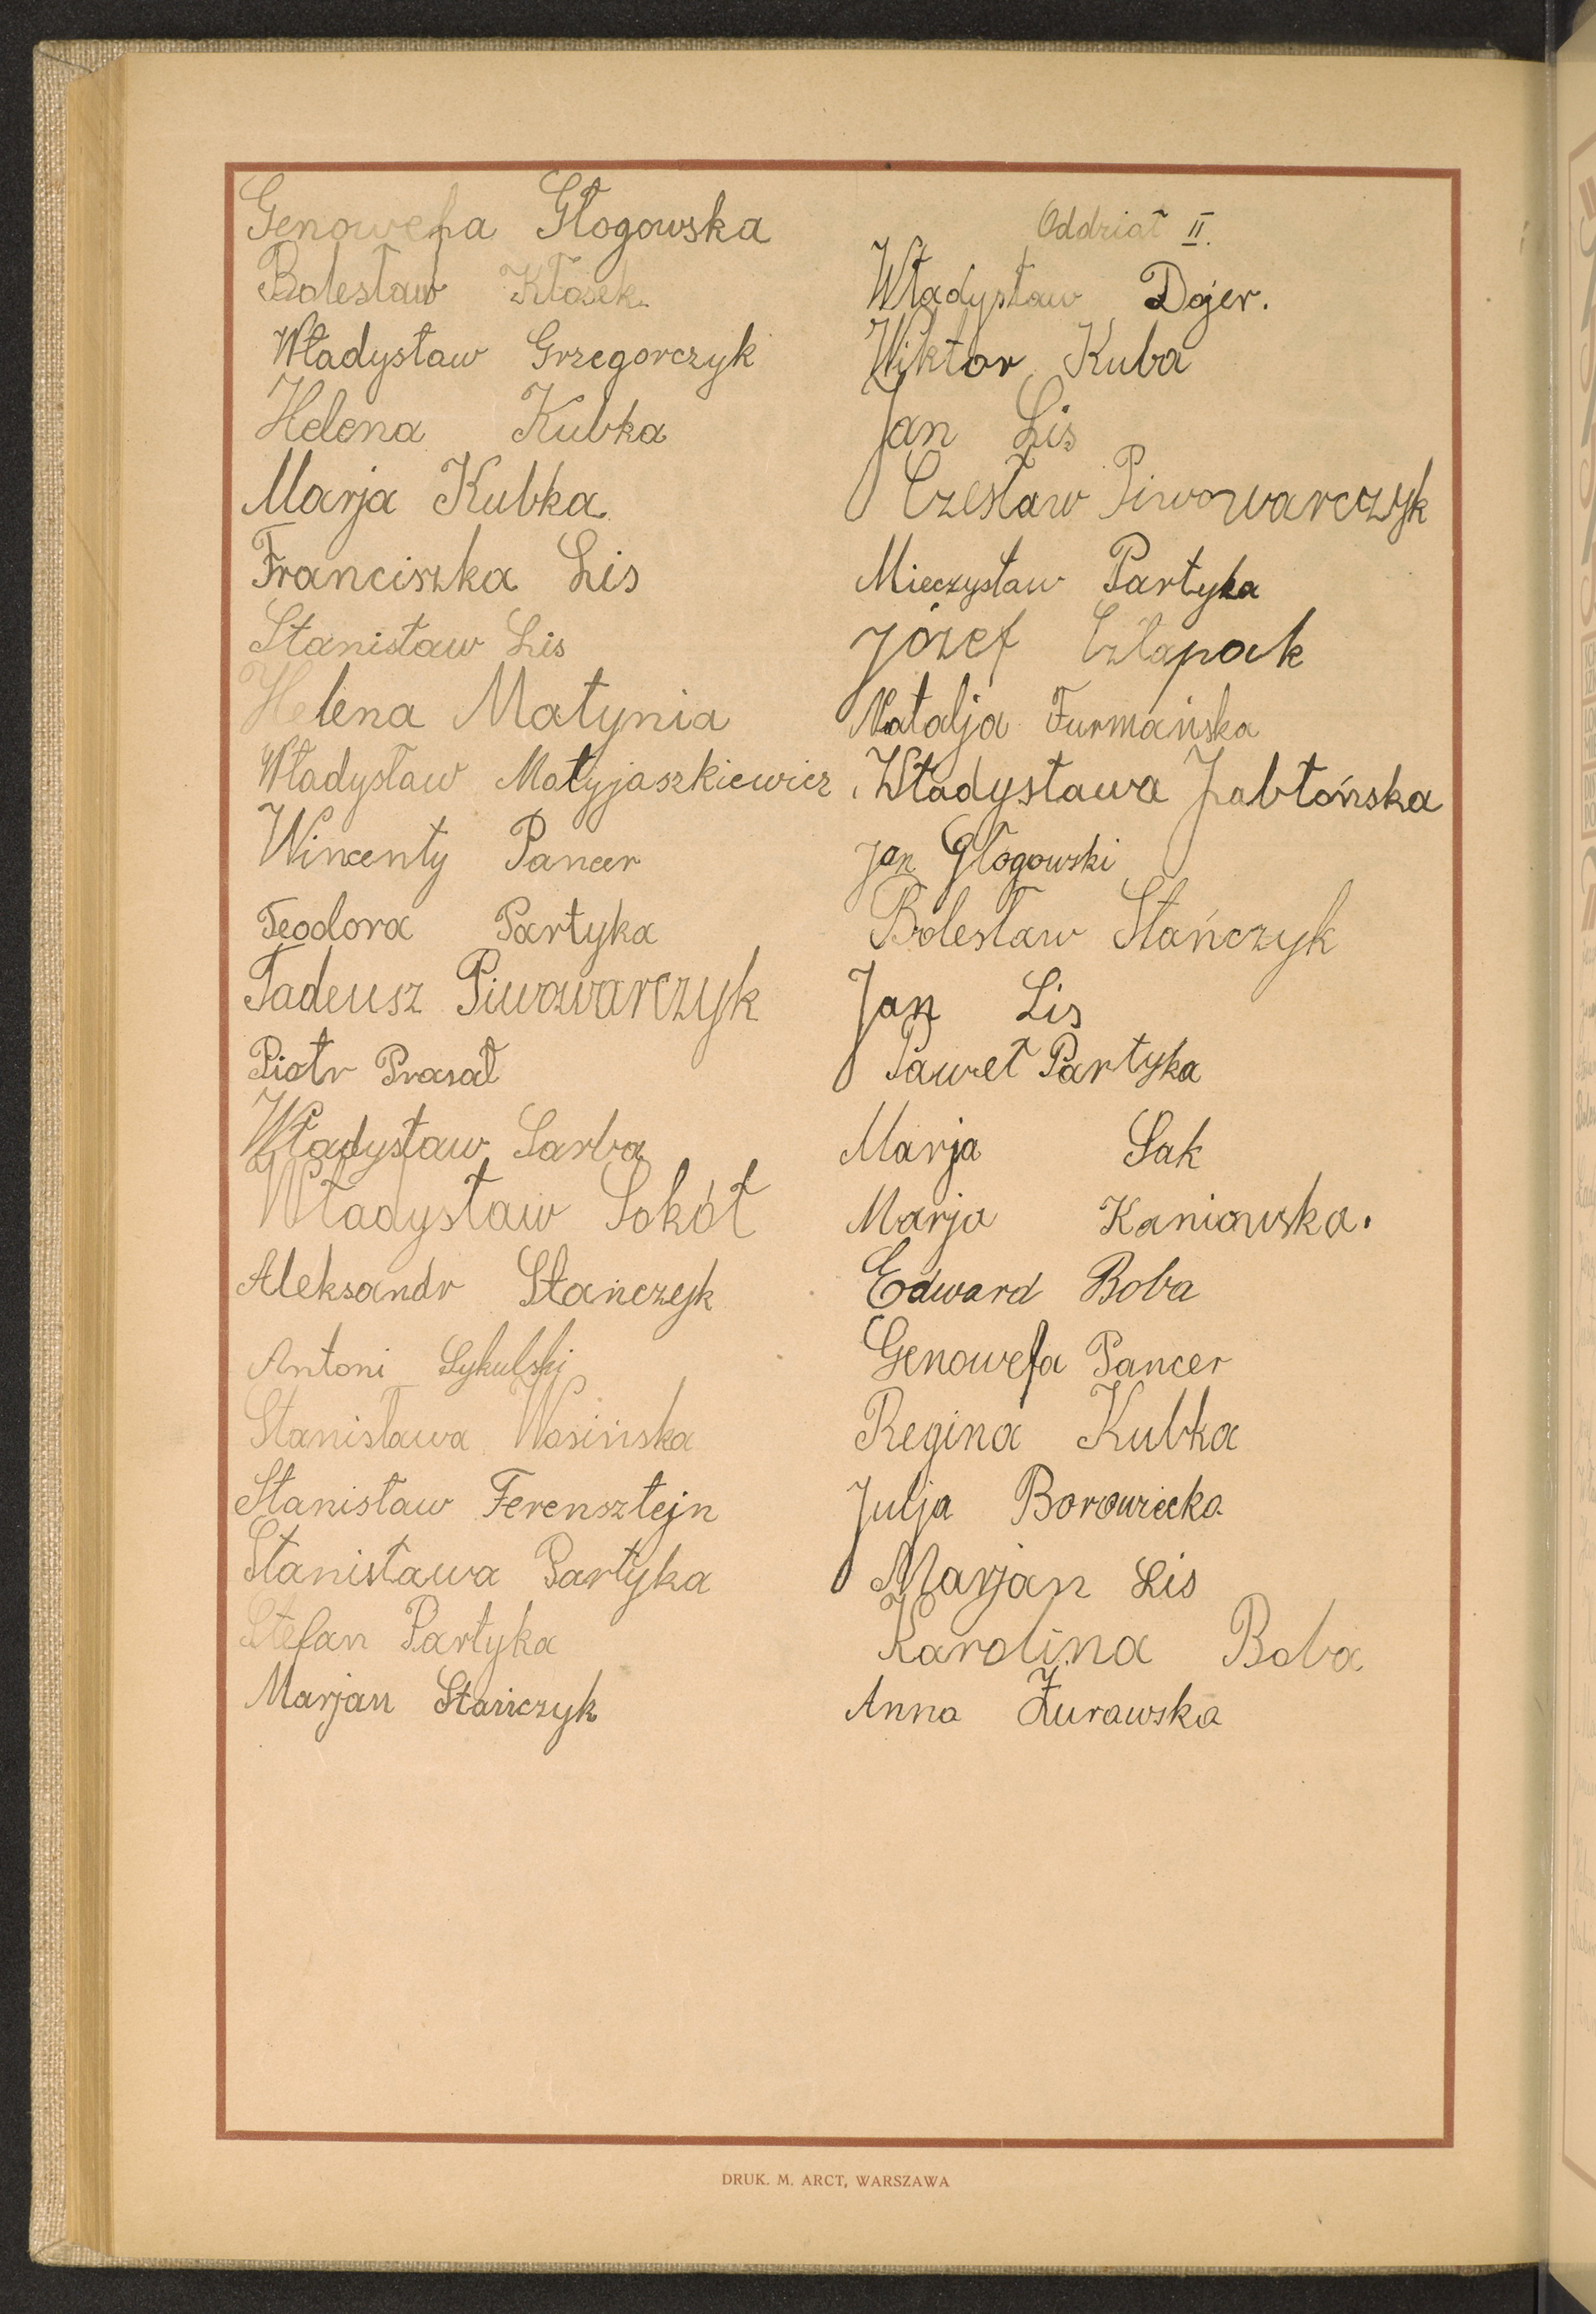 Genowefa Głogowska
Bolesław Kłosek
Władysław Grzegorczyk
Helena Kubka
Marja Kubka
Franciszka Lis
Stanisław Lis
Helena Matynia
Władysław Matyjaszkiewicz
Wincenty Pancer
Teodora Partyka
Tadeusz Piwowarczyk
Piotr Prasał
Władysław Sarba
Władysław Sokół
Aleksandr Stańczyk
Antoni Sykulski
Stanisława Wosińska
Stanisław Ferensztejn
Stanisława Partyka
Stefan Partyka
Marjan Stańczyk
Oddział II.
Władysław Dojer.
Wiktor Kuba
Jan Lis
Czesław Piwowarczyk
Mieczysław Partyka
Józef Człapak
Natalja Furmańska
Władysława Jabłońska
Jan Głogowski
Bolesław Stańczyk
Jan Lis
Paweł Partyka
Marja Sak
Marja Kaniowska.
Edward Boba
Genowefa Pancer
Regina Kubka
Julja Borowiecka
Marjan Lis
Karolina Boba
Anna Żurawska
DRUK. M. ARCT, WARSZAWA